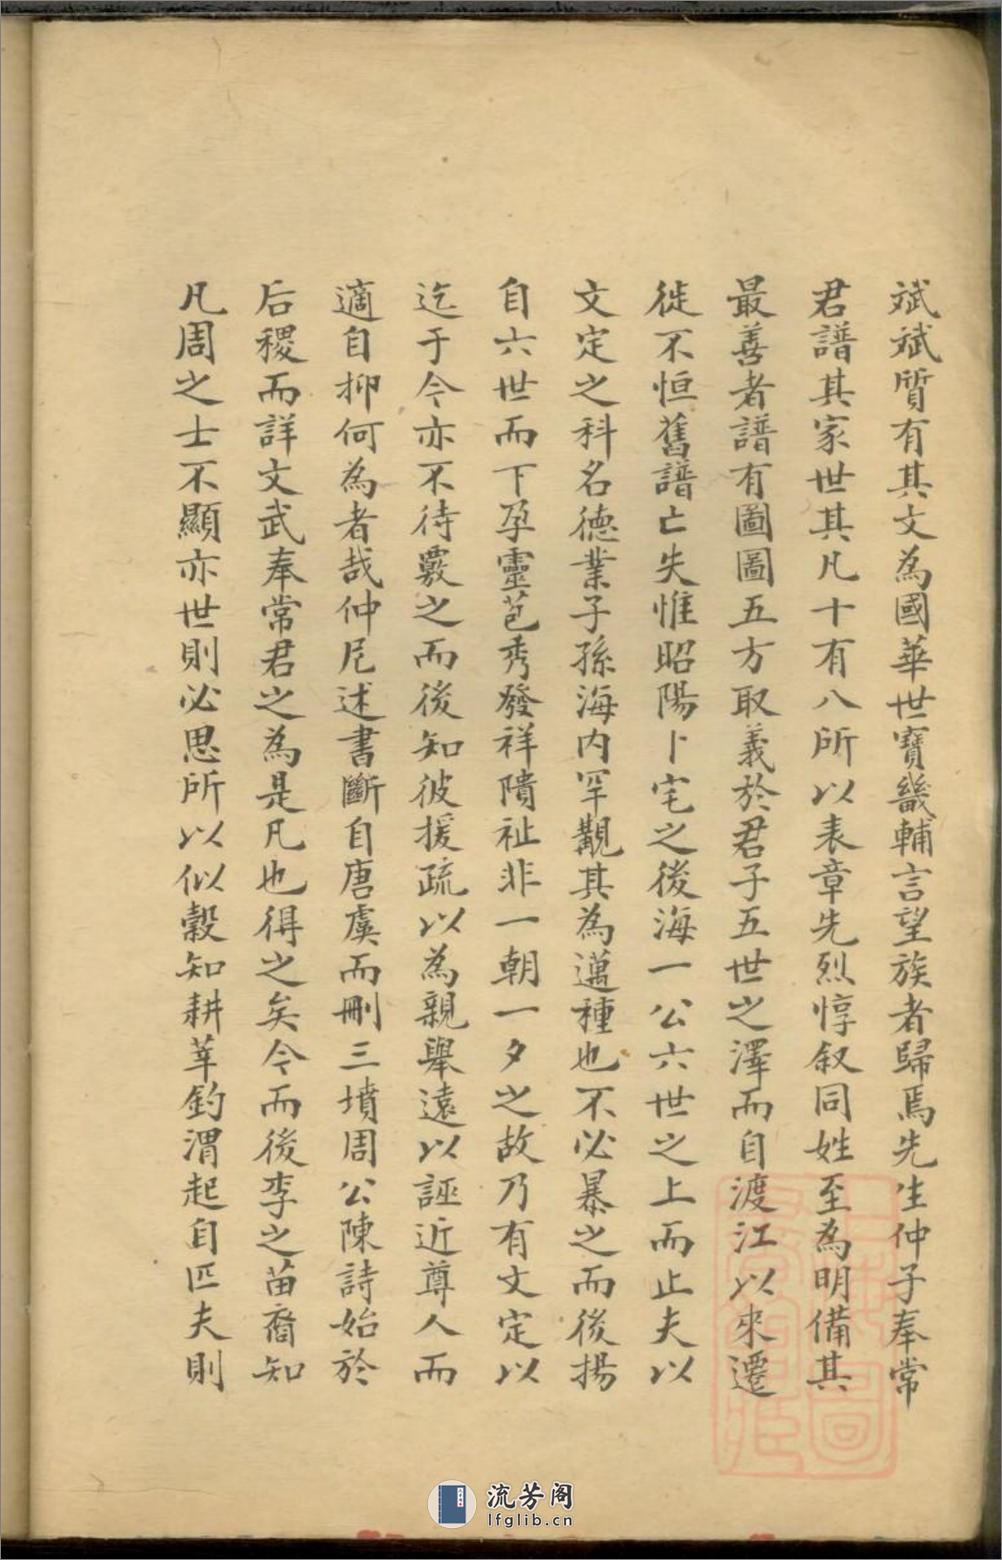 斌斌質有其文為國華世寶畿輔言望族者歸焉先生仲子奉常
君譜其家世其凡十有八所以表章先烈惇叙同姓至為明備其
最善者譜有圖圖五方取義於君子五世之澤而自渡江以來遷
徙不恒舊譜亡失惟昭陽卜宅之後海一公六世之上而止夫以
文定之科名德業子孫海内罕觀其為邁種也不必暴之而後揚
自六世而下孕靈苞秀發祥隤祉非一朝一夕之故乃有文定以
迄于今亦不待覈之而後知彼援疏以為親舉遠以誣近尊人而
適自抑何為者哉仲尼述書斷自唐虞而刪三墳周公陳詩始於
后稷而詳文武奉常君之為是凡也得之矣今而後李之苗裔知
凡周之士不顯亦世則必思所以似穀知耕莘釣渭起自匹夫則
流芳阁
lfglib.cn